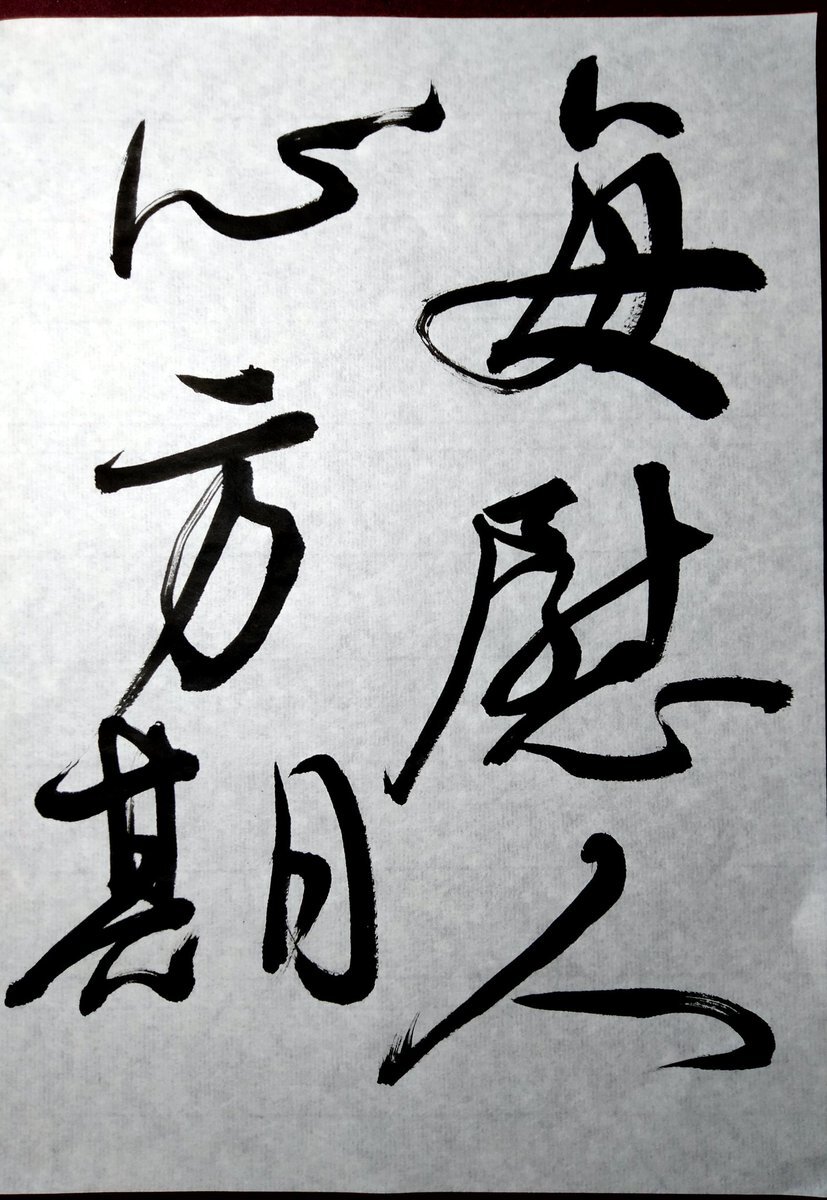 每慰人
心方期